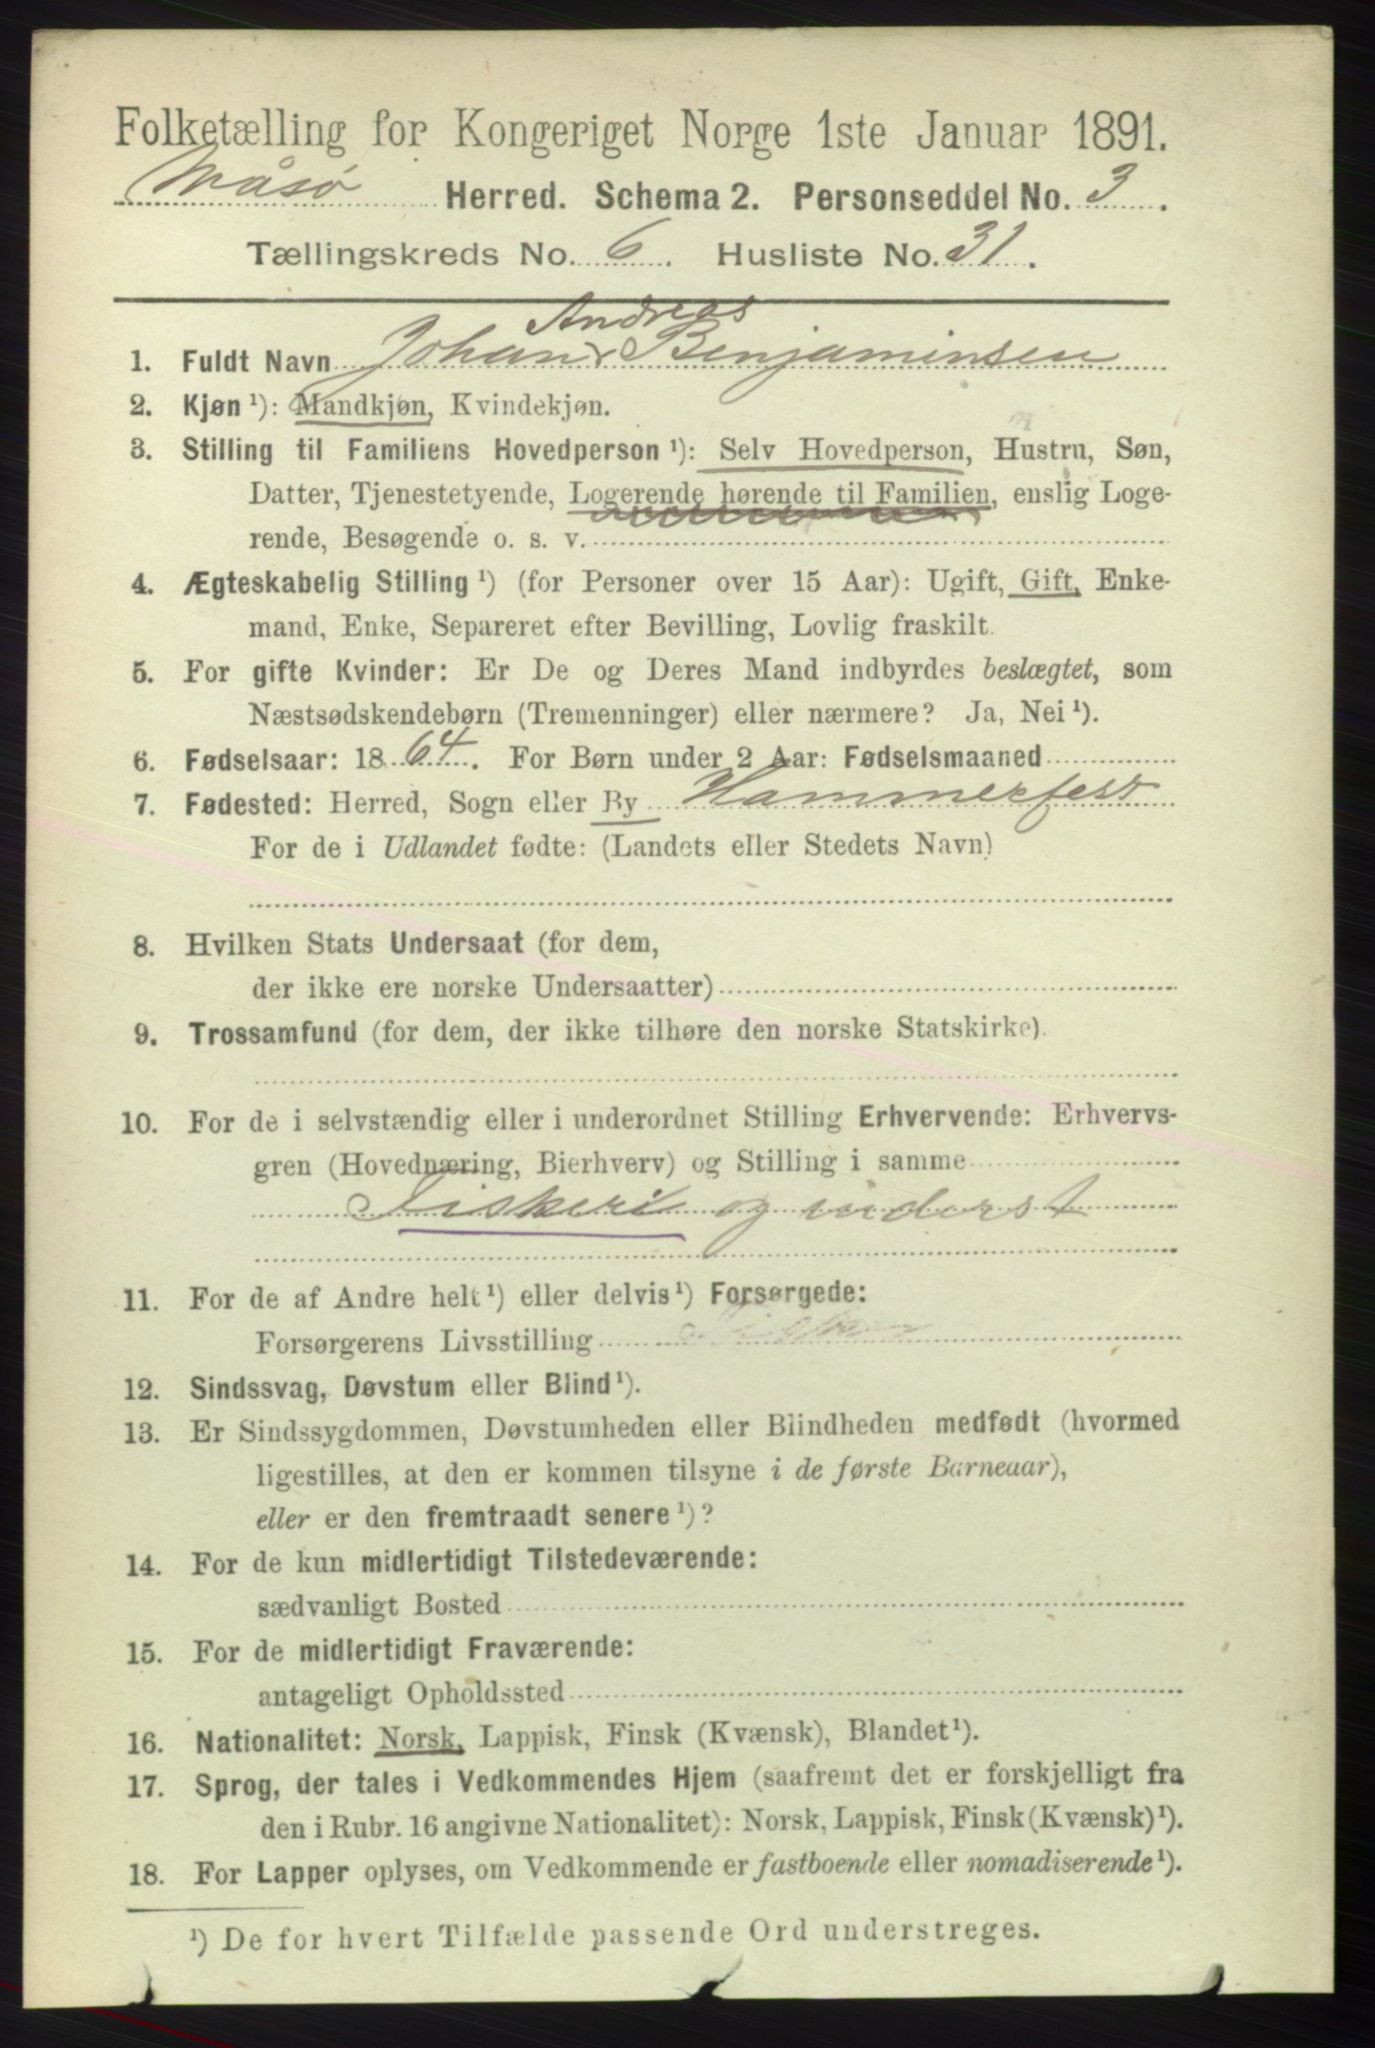 Folketælling for Kongeriget Norge 1ste Januar 1891.
Måsø Herred. Schema 2. Personseddel No. 3.
Tællingskreds No. 6. Husliste No. 31.
Andreas
1. Fuldt Navn Johan Benjaminsen
2. Kjøn ¹): Mandkjøn, Kvindekjøn.
3. Stilling til Familiens Hovedperson ¹): Selv Hovedperson, Hustru, Søn,
Datter, Tjenestetyende, Logerende hørende til Familien, enslig Loge-
rende, Besøgende o. s. v.
4. Ægteskabelig Stilling ¹) (for Personer over 15 Aar): Ugift, Gift, Enke-
mand, Enke, Separeret efter Bevilling, Lovlig fraskilt.
5. For gifte Kvinder: Er De og Deres Mand indbyrdes beslægtet, som
Næstsødskendebørn (Tremenninger) eller nærmere? Ja, Nei ¹).
6. Fødselsaar: 1864. For Børn under 2 Aar: Fødselsmaaned
7. Fødested: Herred, Sogn eller By Hammerfest
For de i Udlandet fødte: (Landets eller Stedets Navn)
8. Hvilken Stats Undersaat (for dem,
der ikke ere norske Undersaatter)
9. Trossamfund (for dem, der ikke tilhøre den norske Statskirke).
10. For de i selvstændig eller i underordnet Stilling Erhvervende: Erhvervs-
gren (Hovednæring, Bierhverv) og Stilling i samme
Fiskeri og inderst
11. For de af Andre helt ¹) eller delvis ¹) Forsørgede:
Forsørgerens Livsstilling
12. Sindssvag, Døvstum eller Blind ¹).
13. Er Sindssygdommen, Døvstumheden eller Blindheden medfødt (hvormed
ligestilles, at den er kommen tilsyne i de første Barneaar),
eller er den fremtraadt senere ¹)?
14. For de kun midlertidigt Tilstedeværende:
sædvanligt Bosted
15. For de midlertidigt Fraværende:
antageligt Opholdssted
16. Nationalitet: Norsk, Lappisk, Finsk (Kvænsk), Blandet ¹).
17. Sprog, der tales i Vedkommendes Hjem (saafremt det er forskjelligt fra
den i Rubr. 16 angivne Nationalitet): Norsk, Lappisk, Finsk (Kvænsk) ¹).
18. For Lapper oplyses, om Vedkommende er fastboende eller nomadiserende ¹).
¹) De for hvert Tilfælde passende Ord understreges.